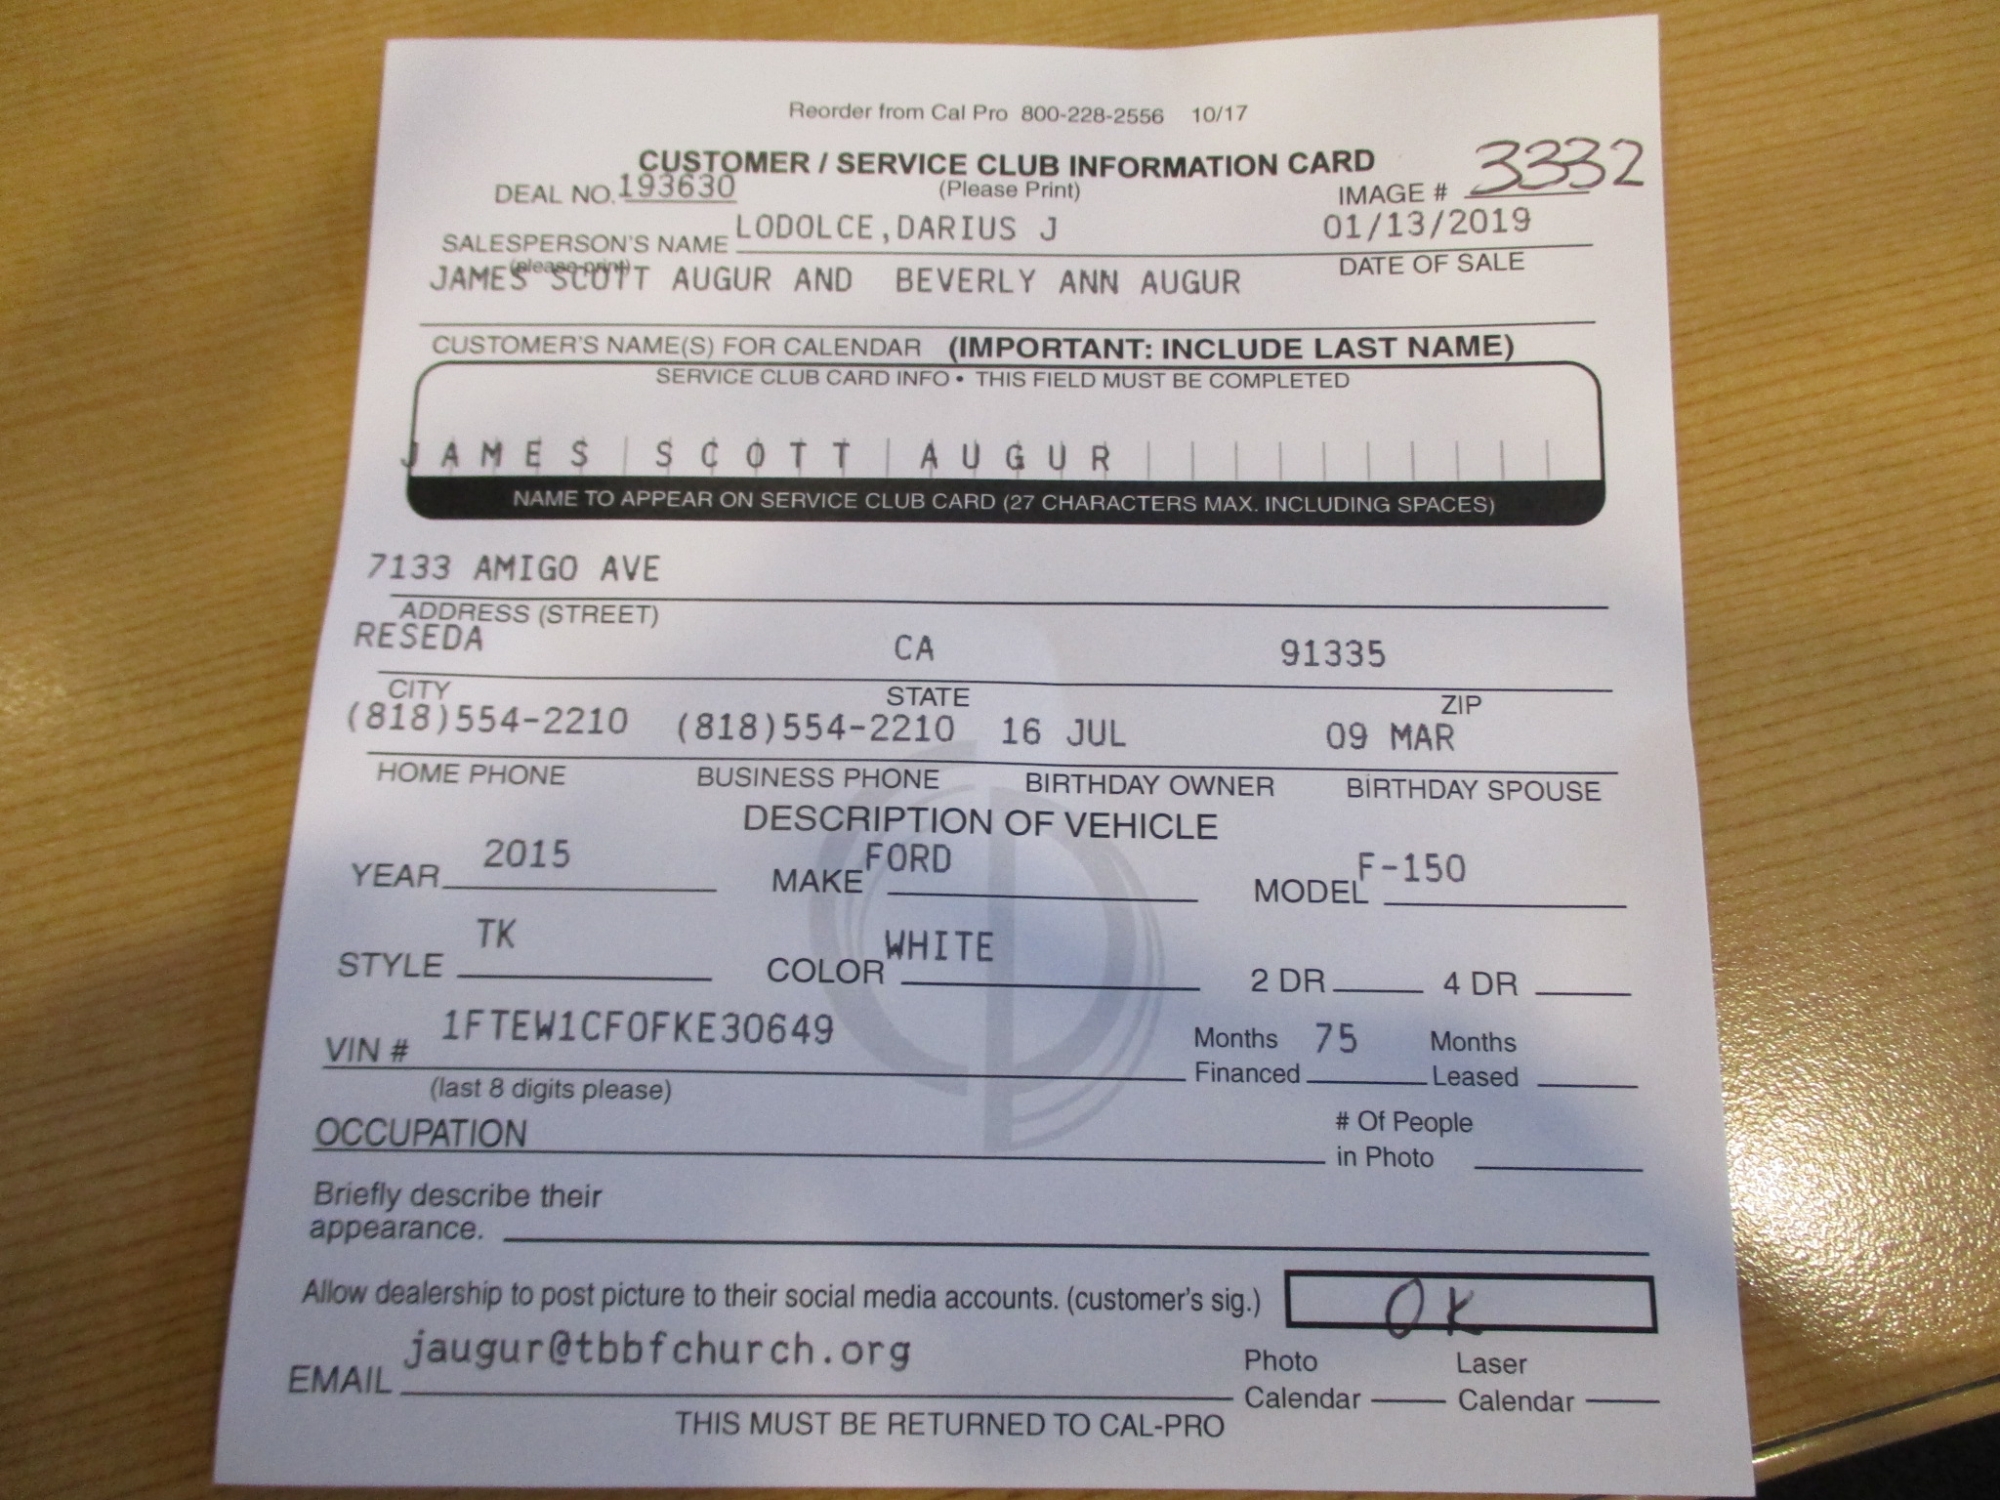 Reorder from Cal Pro 800-228-2556 10/17
CUSTOMER / SERVICE CLUB INFORMATION CARD
DEAL NO. 193630 (Please Print) IMAGE # 3332
SALESPERSON'S NAME LODOLCE,DARIUS J 01/13/2019
(please print) DATE OF SALE
JAMES SCOTT AUGUR AND BEVERLY ANN AUGUR
CUSTOMER'S NAME(S) FOR CALENDAR (IMPORTANT: INCLUDE LAST NAME)
SERVICE CLUB CARD INFO • THIS FIELD MUST BE COMPLETED
JAMES SCOTT AUGUR
NAME TO APPEAR ON SERVICE CLUB CARD (27 CHARACTERS MAX. INCLUDING SPACES)
7133 AMIGO AVE
ADDRESS (STREET)
RESEDA CA 91335
CITY STATE ZIP
(818)554-2210 (818)554-2210 16 JUL 09 MAR
HOME PHONE BUSINESS PHONE BIRTHDAY OWNER BIRTHDAY SPOUSE
DESCRIPTION OF VEHICLE
YEAR 2015 MAKE FORD MODEL F-150
STYLE TK COLOR WHITE 2 DR 4 DR
VIN # 1FTEW1CF0FKE30649 Months Financed 75 Months Leased
(last 8 digits please)
OCCUPATION # Of People in Photo
Briefly describe their
appearance.
Allow dealership to post picture to their social media accounts. (customer's sig.) OK
EMAIL jaugur@tbbfchurch.org Photo Calendar Laser Calendar
THIS MUST BE RETURNED TO CAL-PRO